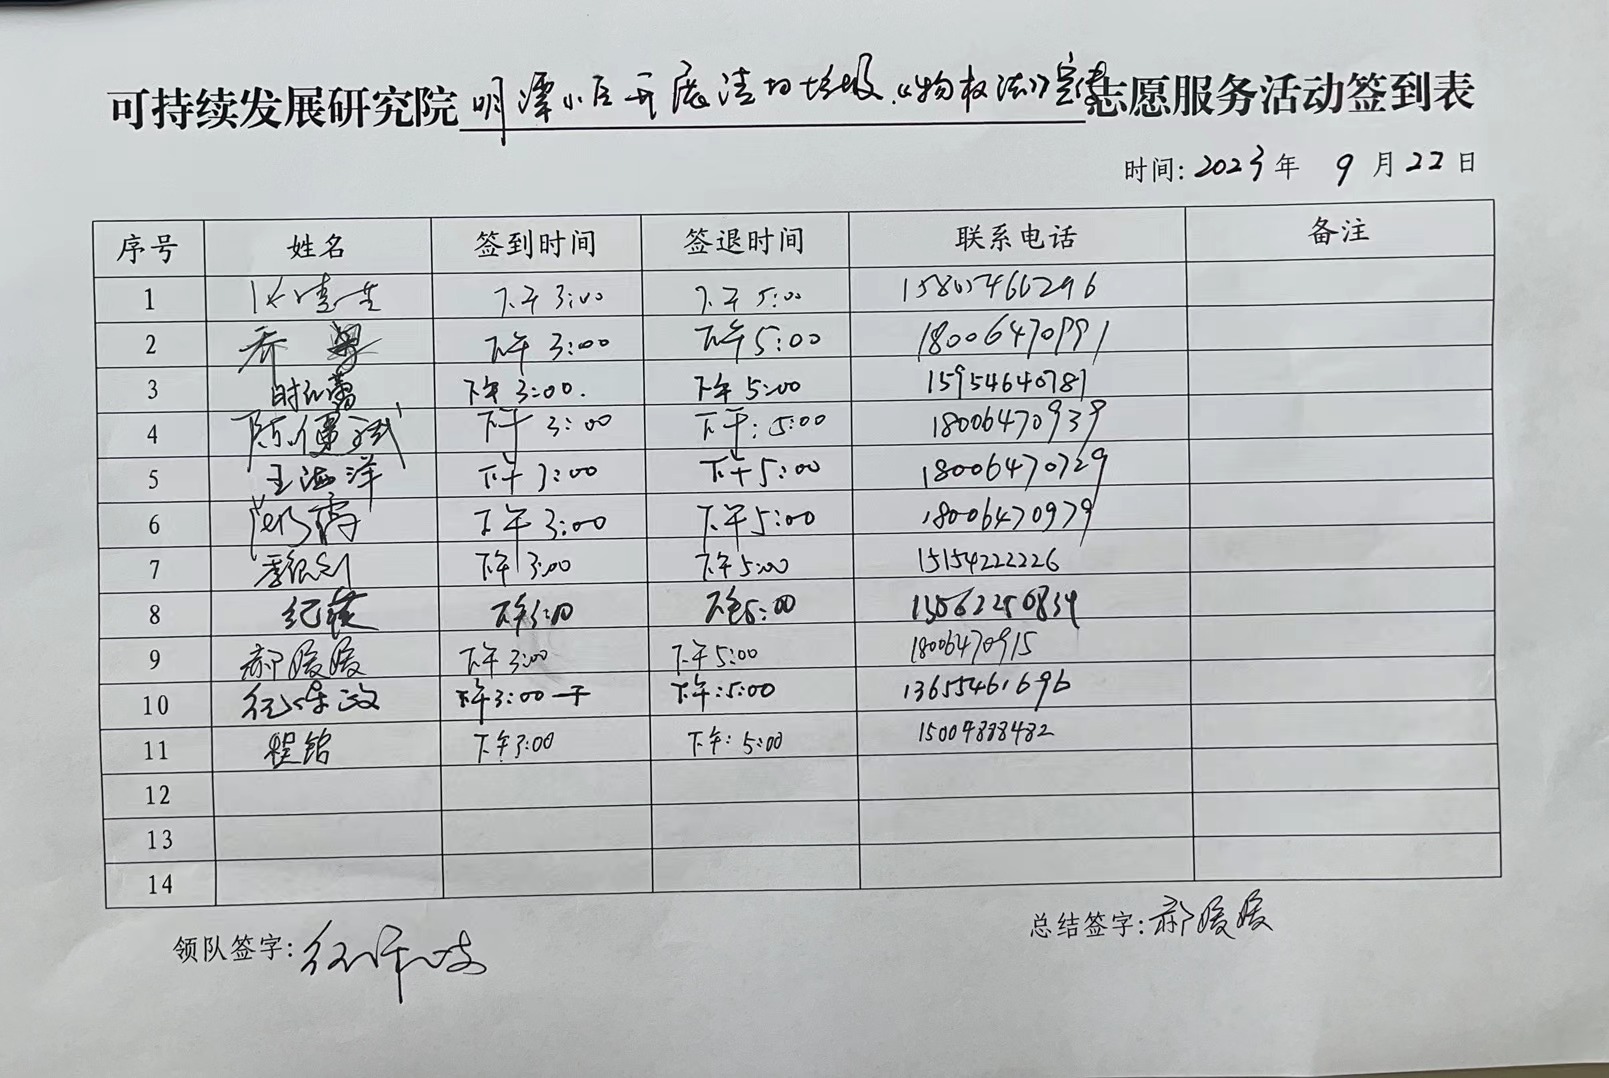 可持续发展研究院明潭小区开展清扫垃圾、《物权法》宣传志愿服务活动签到表
时间: 2023年 9月22日
序号 姓名 签到时间 签退时间 联系电话 备注
1 下午3:00 下午5:00
2 乔 下午3:00 下午5:00 18006470991
3 时红蕾 下午3:00. 下午5:00 15954640787
4 下午3:00 下午:5:00 18006470939
5 王海洋 下午3:00 下午5:00 18006470729
6 下午3:00 下午5:00 18006470979
7 下午3:00 下午5:00 15154222226
8 纪 下午3:00 下午5:00
9 郝媛媛 下午3:00 下午5:00 18006470915
10 下午3:00 下午:5:00 13655461696
11 程铭 下午3:00 下午:5:00 15004888482
12
13
14
领队签字:
总结签字:郝媛媛